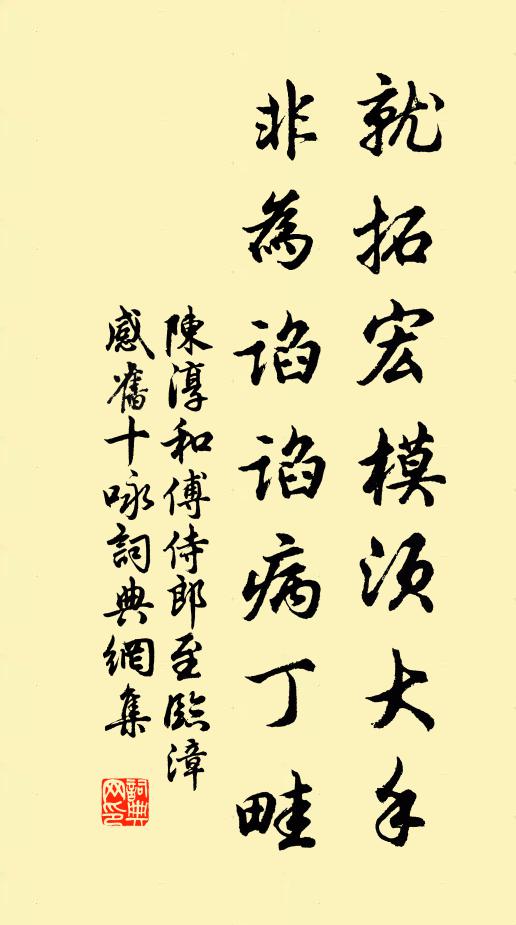 就拓宏模須大手
非為諂諂病丁畦
陳淳和傅侍郎至臨漳
感舊十咏詞典網集
詞典網印